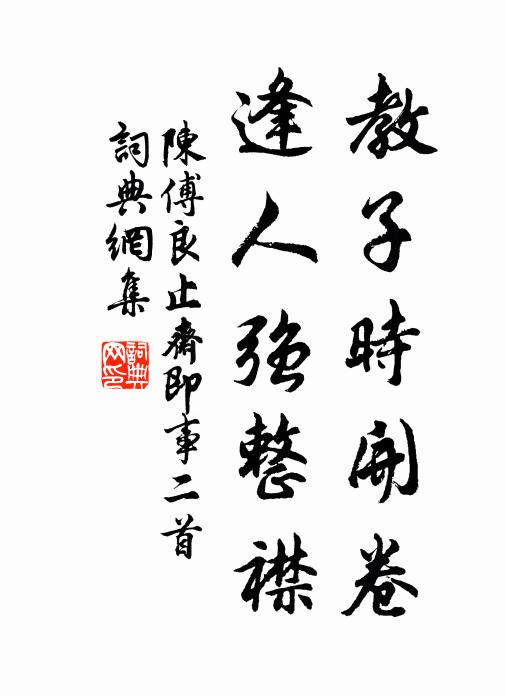 教子時開卷
逢人強整襟
陳傅良止齋即事二首
詞典網集
詞典
网印